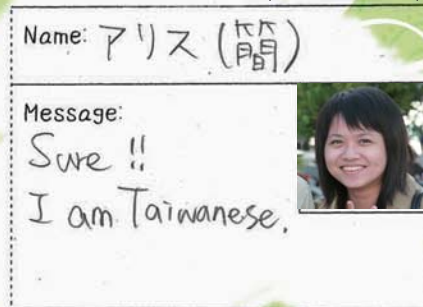 Name: アリス (簡)
Message:
Sure !!
I am Taiwanese.